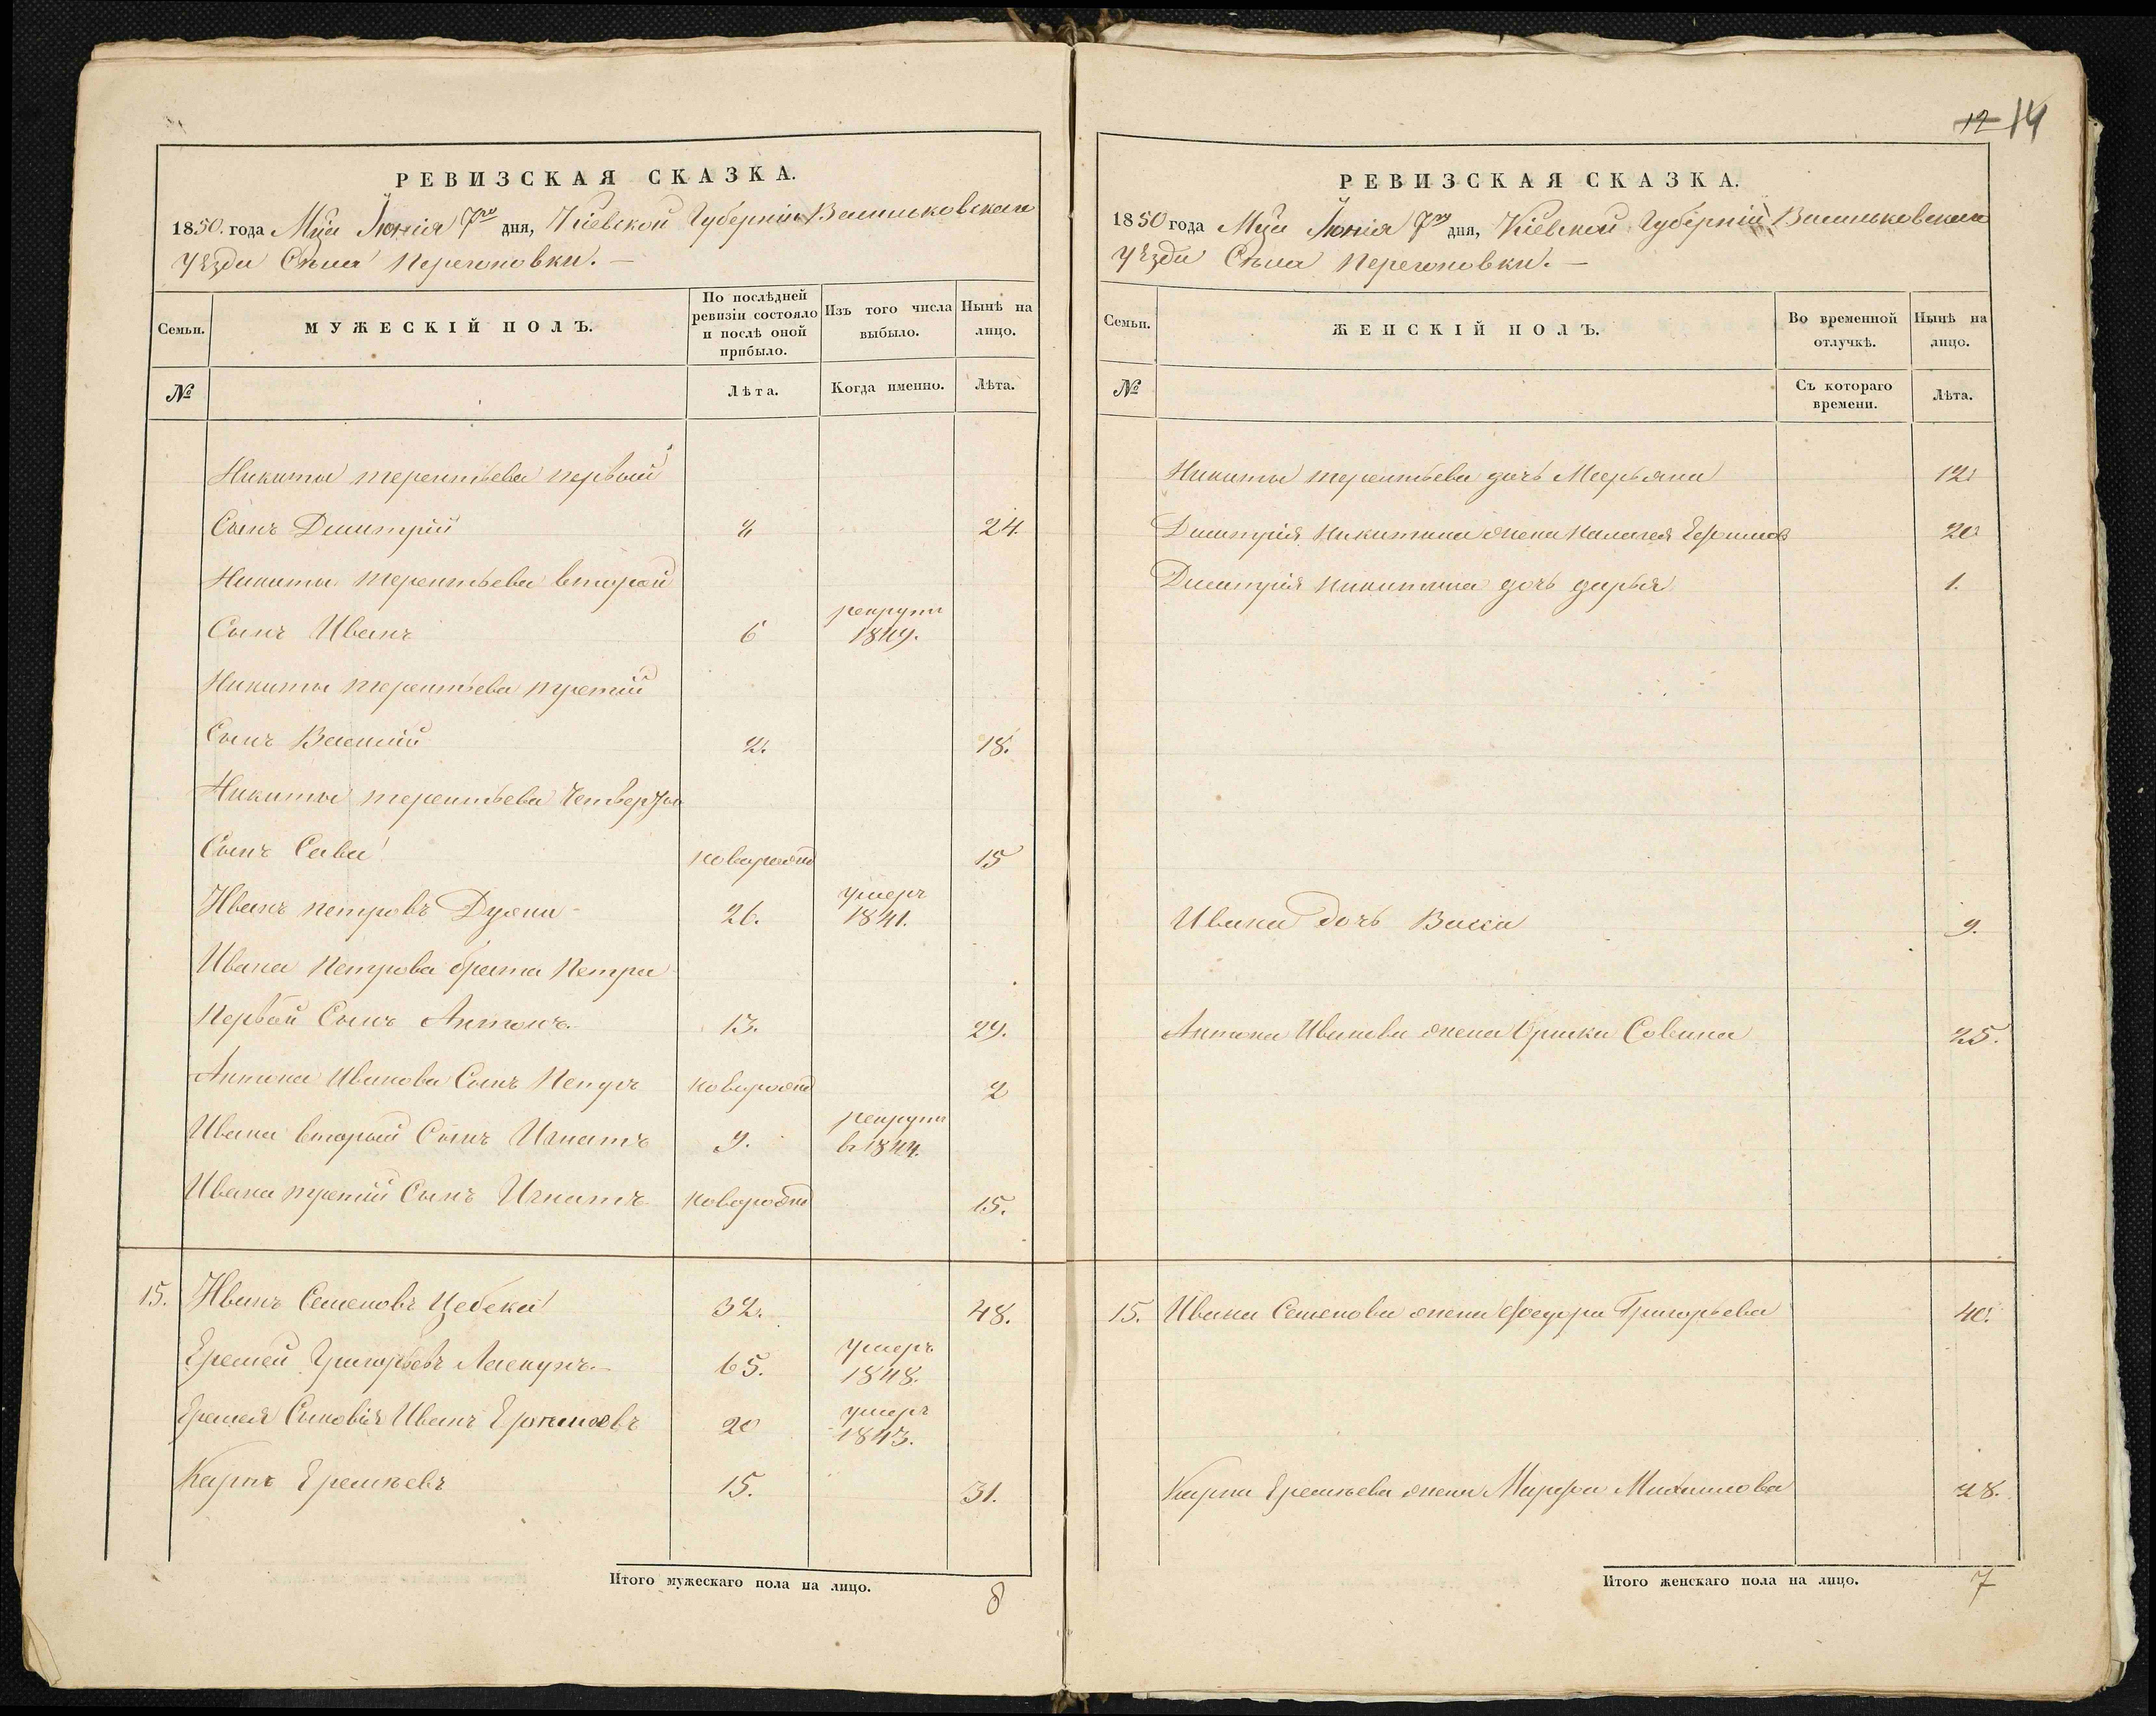 12 14
РЕВИЗСКАЯ СКАЗКА.
1850. года Мца Июнія 7го дня, Кіевской Губерніи Васильковскаго
Уѣзда Села Перегоновки. —
Семьи.
МУЖЕСКІЙ ПОЛЪ.
По послѣдней ревизіи состояло и послѣ оной прибыло.
Изъ того числа выбыло.
Нынѣ на лицо.
№
Лѣта.
Когда именно.
Лѣта.
Никиты терентьева первый
Сынъ Дмитрій 24.
Никиты терентьева второй
рекрутъ
Сынъ Иванъ 6 1849.
Никиты терентьева третій
Сынъ Василій 2. 18.
Никиты терентьева четвертый
Сынъ Сава новорожд 15
умеръ
Иванъ петровъ 26. 1841.
Ивана Петрова брата Петра
Первый Сынъ Антонъ. 13. 29.
Антона Иванова Сынъ Петръ новорожд 2
рекрутъ
Ивана вторый Сынъ Игнатъ 9. в 1844.
Ивана третій Сынъ Игнатъ новорожд 15.
15. Иванъ Семеновъ Цебека 32. 48.
умеръ
Еремей Григорьевъ 65. 1848.
умеръ
Еремея Сыновія Иванъ 20 1843.
Карпъ Еремѣевъ 15. 31.
Итого мужескаго пола на лицо. 8
РЕВИЗСКАЯ СКАЗКА.
1850 года Мца Июнія 7го дня, Кіевской Губерніи Васильковскаго
Уѣзда Села Перегоновки. —
Семьи.
ЖЕНСКІЙ ПОЛЪ.
Во временной отлучкѣ.
Нынѣ на лицо.
№
Съ котораго времени.
Лѣта.
Никиты терентьева дочь Марьяна 12
Дмитрія Никитина жена Палагея 20
Дмитрія Никитина дочь дарья 1.
Ивана дочь Васса 9.
Антона Иванова жена Савина 25.
15. Ивана Семенова жена Федора Григорьева 40.
Карпа Еремѣева жена Марфа Михаилова 28.
Итого женскаго пола на лицо. 7